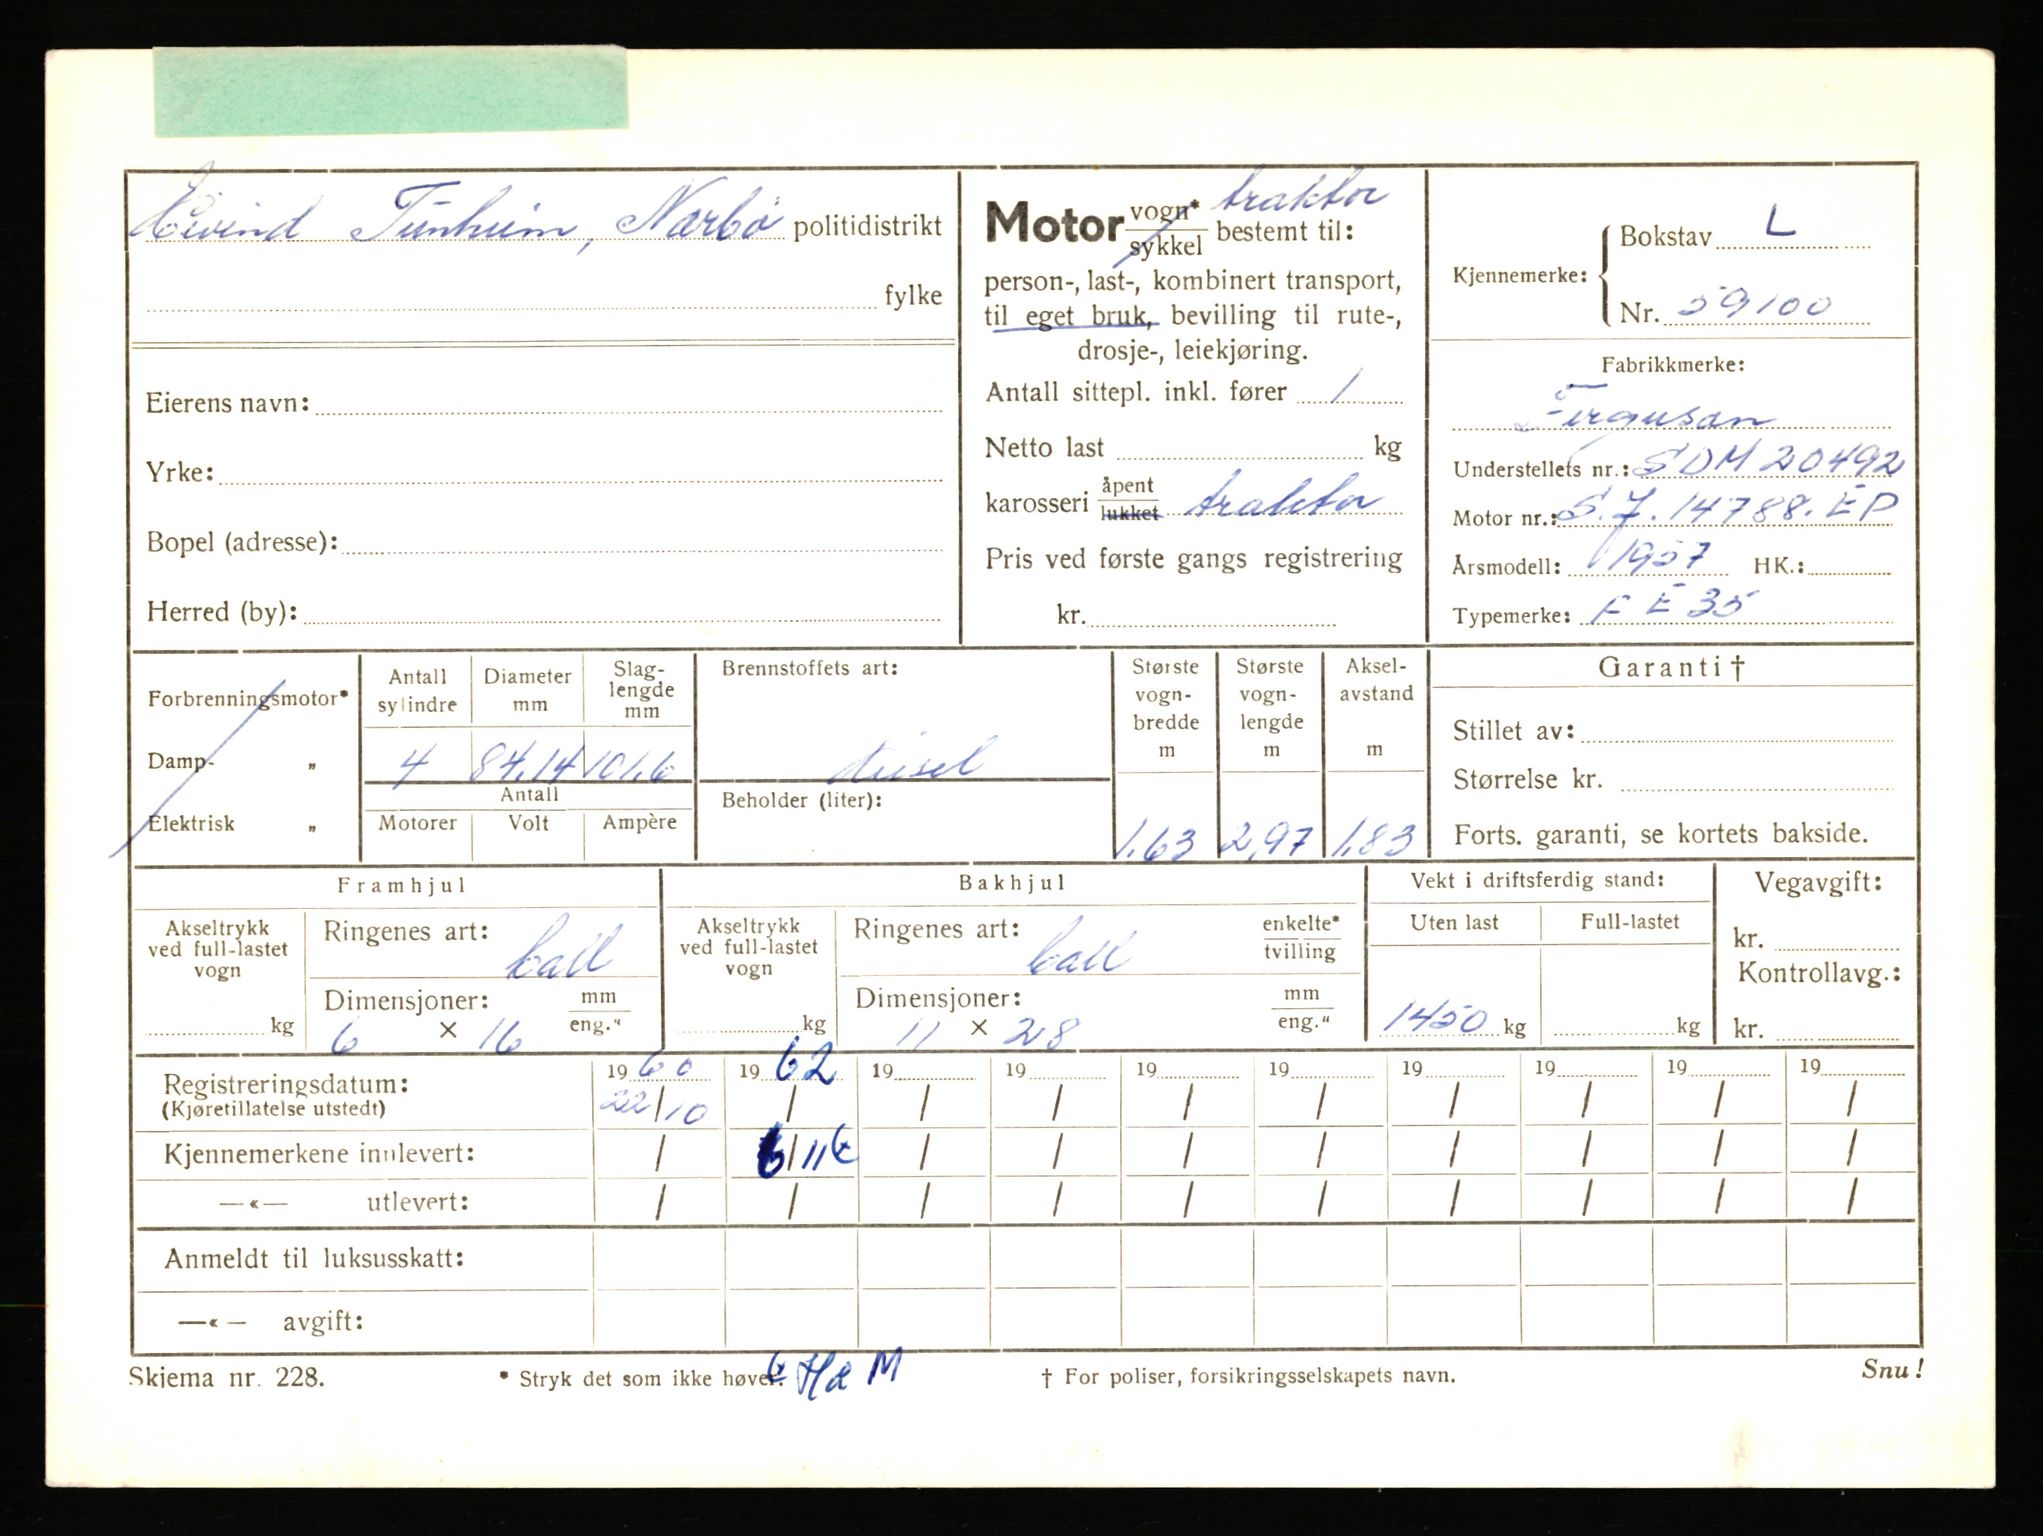 Eivind Tunheim, Nærbø politidistrikt
fylke
Eierens navn:
Yrke:
Bopel (adresse):
Herred (by):
traktor
Motor vogn* sykkel bestemt til:
person-, last-, kombinert transport,
til eget bruk, bevilling til rute-,
drosje-, leiekjøring.
Antall sittepl. inkl. fører 1
Netto last kg
karosseri åpent lukket traktor
Pris ved første gangs registrering
kr.
Kjennemerke:
Bokstav L
Nr. 59100
Fabrikkmerke:
Ferguson
Understellets nr.: SDM 20492
Motor nr.: S.J. 14788. EP
Årsmodell: 1957 HK.:
Typemerke: F E 35
Forbrenningsmotor*
Damp- „
Elektrisk „
Antall sylindre
Diameter mm
Slaglengde mm
4 84.14 101.6
Antall
Motorer Volt Ampère
Brennstoffets art:
diesel
Beholder (liter):
Største vogn-bredde m
1.63
Største vogn-lengde m
2,97
Aksel-avstand m
1.83
Garanti †
Stillet av:
Størrelse kr.
Forts. garanti, se kortets bakside.
Framhjul
Akseltrykk ved full-lastet vogn
kg
Ringenes art:
ball
Dimensjoner: mm eng."
6 × 16
Bakhjul
Akseltrykk ved full-lastet vogn
kg
Ringenes art: enkelte* tvilling
ball
Dimensjoner: mm eng."
11 × 28
Vekt i driftsferdig stand:
Uten last Full-lastet
1450 kg kg
Vegavgift:
kr.
Kontrollavg.:
kr.
Registreringsdatum: 1960 1962 19 19 19 19 19 19 19 19
(Kjøretillatelse utstedt) 22/10 / / / / / / / / /
Kjennemerkene innlevert: / 6/11 / / / / / / / /
—«— utlevert: / / / / / / / / / /
Anmeldt til luksusskatt:
—«— avgift:
Skjema nr. 228.
* Stryk det som ikke høver.
† For poliser, forsikringsselskapets navn.
Snu!